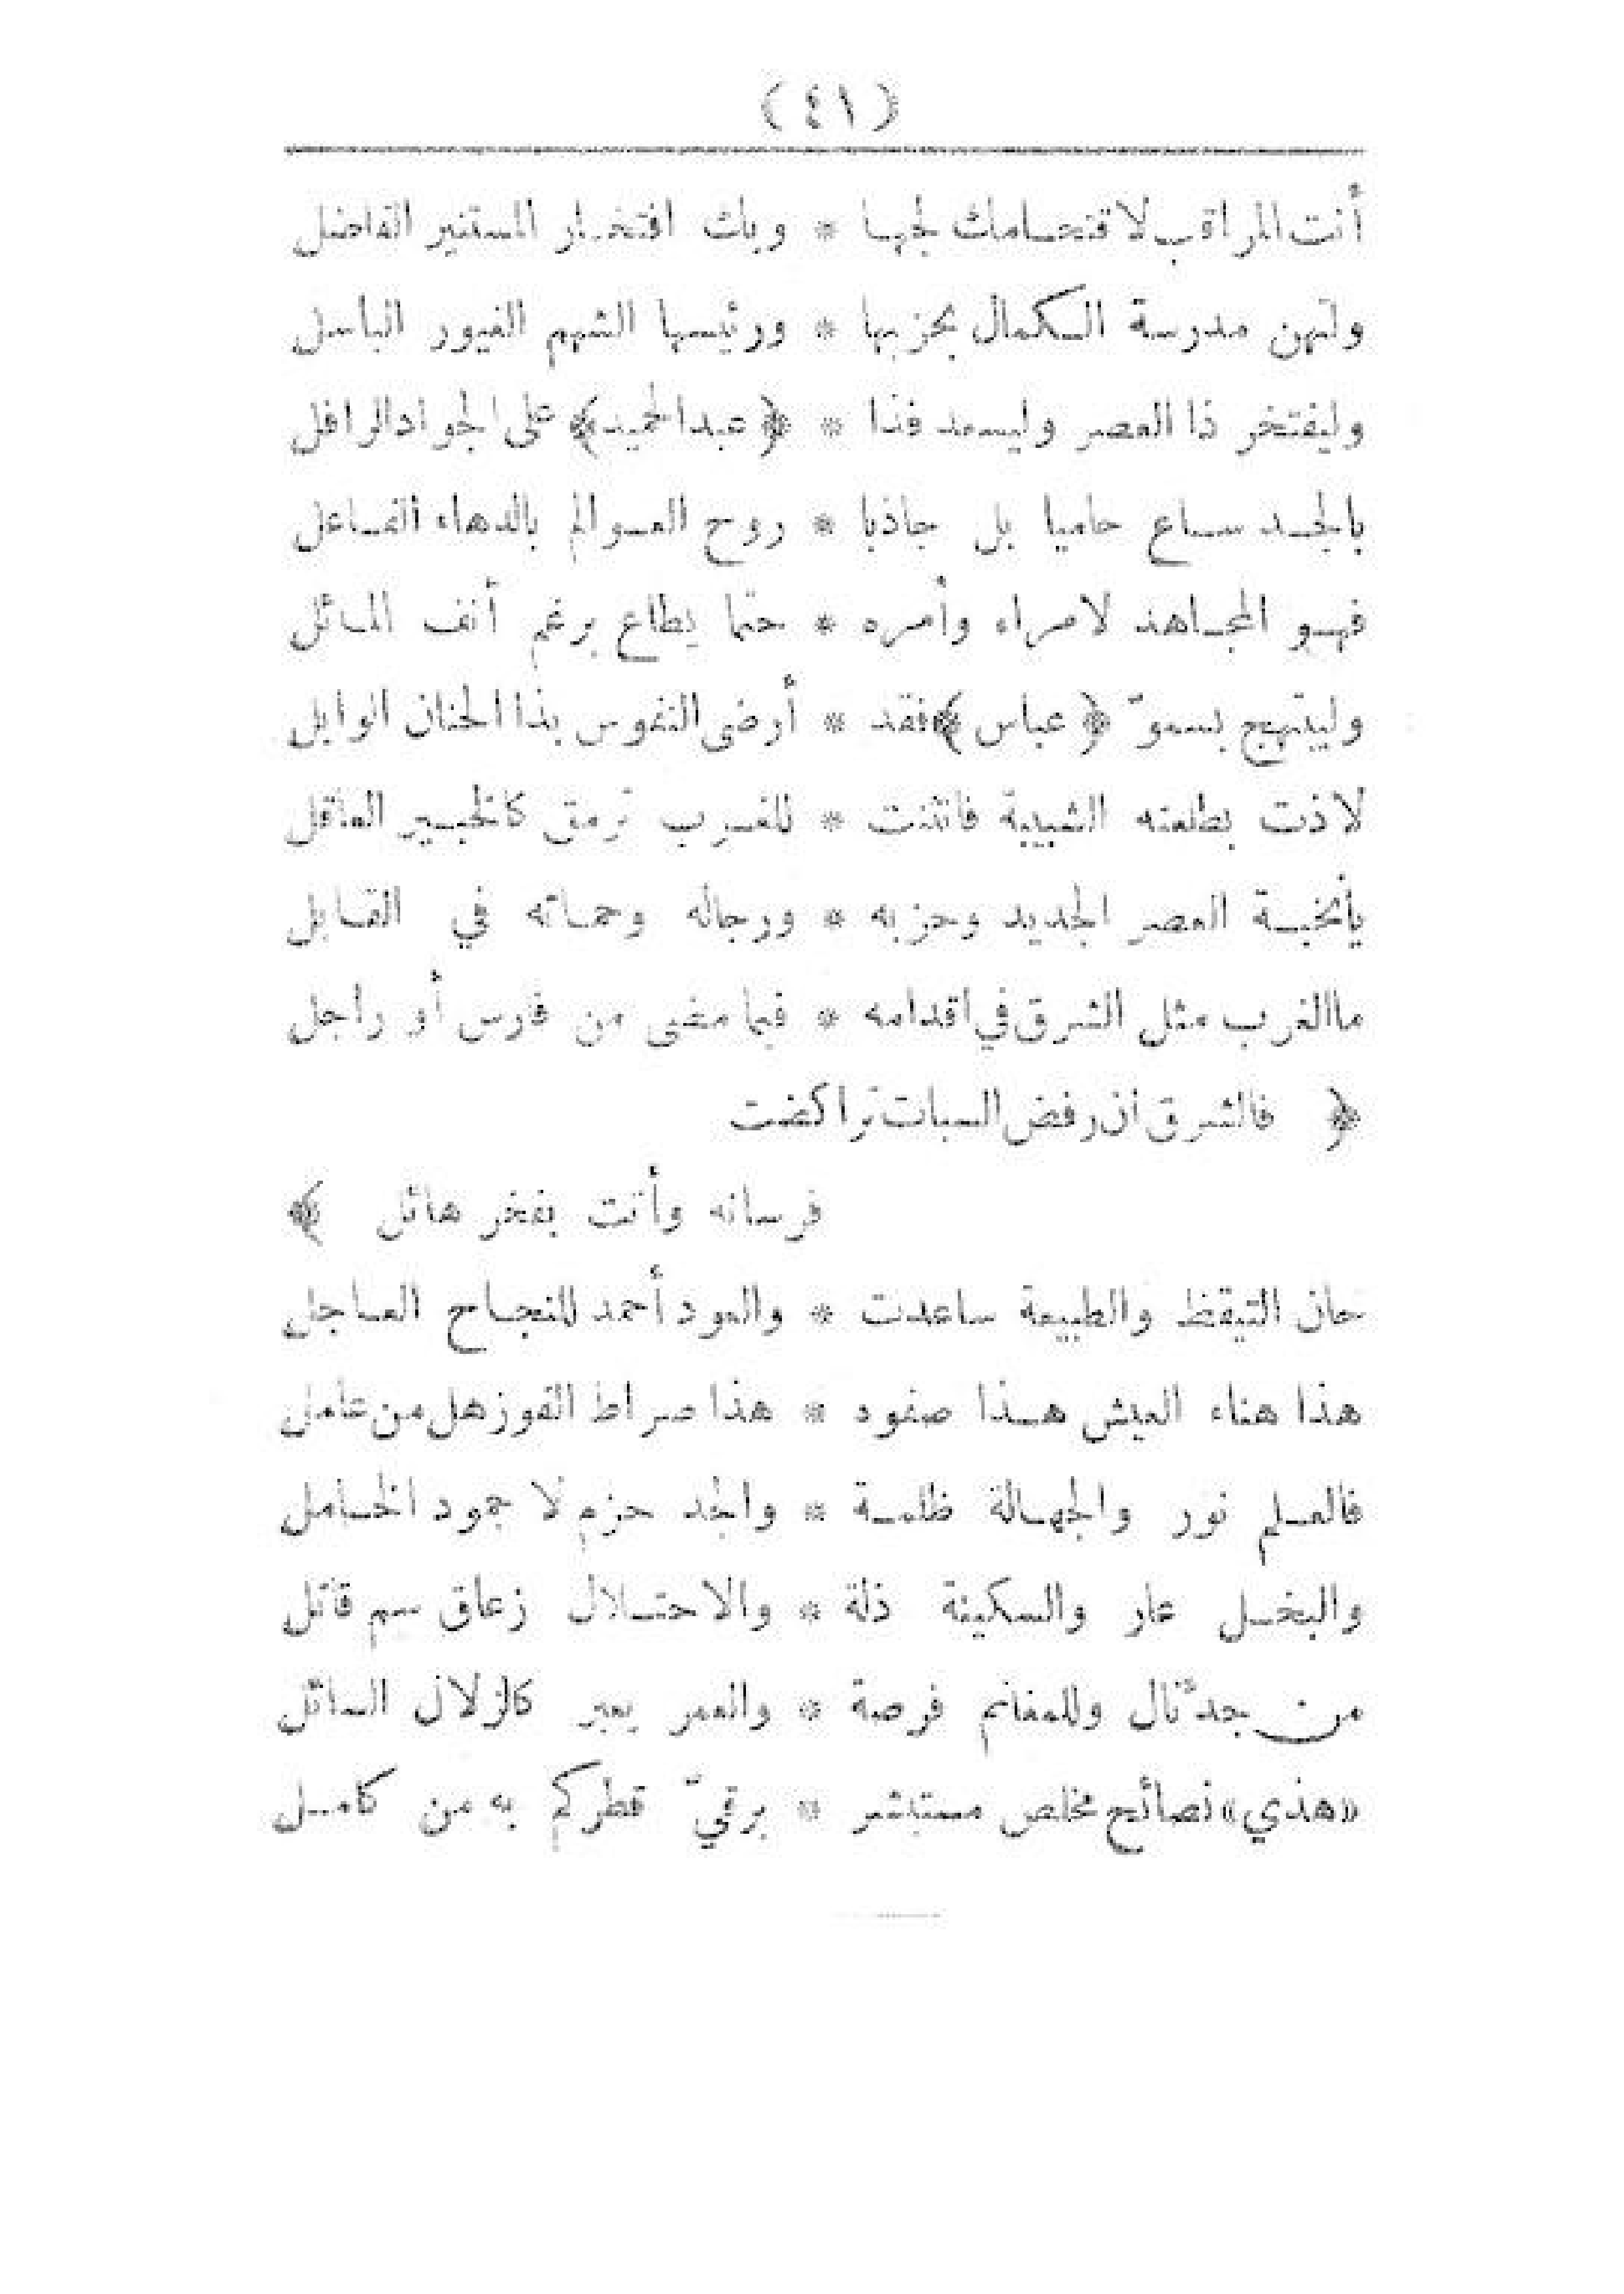 (٤١)
أنت المراقب لاقتحامك لجهـا * وبك افتخار المستنير الفاضل
ولتهن مدرسة الكمال بحزبها * ورئيسها الشهم الغيور الباسل
وليفتخر ذا العصر وليسعد فذا * ﴿عبدالحميد﴾ على الجواد الرافل
بالجـد ساع حاميا بل جاذبا * روح العـوالم بالدهاء الفـاعل
فهـو المجـاهد لامراء وأمره * حتما يطاع برغم أنف المـائل
وليبتهج بسموّ ﴿عباس﴾ فقد * أرضى النفوس بذا الحنان الوابل
لاذت بطلعته الشبيبة فانثنت * للغـرب ترمق كالخبـير العاقل
يأنخبـة العصر الجديد وحزبه * ورجاله وحمـاته في القـابل
ماالغرب مثل الشرق في اقدامه * فيما مضى من فارس أو راجل
﴿ فالشرق ان رفض السبات تراكضت
فرسانه وأتت بفخر هائل ﴾
حان التيقظ والطبيعة ساعدت * والعود أحمد للنجـاح العـاجل
هذا هناء العيش هـذا صفوه * هذا صراط الفوز هل من عامل
فالعـلم نور والجهـالة ظلمـة * والجد حزم لا جمود الخـامل
والبخـل عار والسكينة ذلة * والاحتـلال زعاق سم قاتل
من جدّ نال وللمغانم فرصة * والعمر يعبر كالزلال السـائل
«هذي» نصائح مخلص مستبشر * برقيّ قطركم به من كامـل